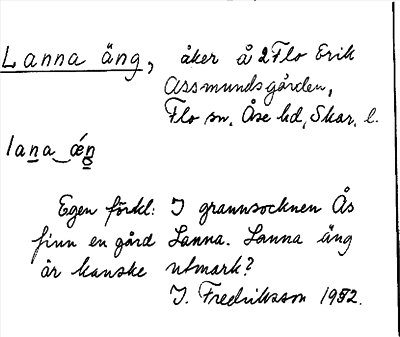 Lanna äng, åker å 2 Flo Erik
Assmundsgården,
Flo sn. Åse hd, Skar. l.
lana ǽŋ
Egen förkl: I grannsocknen Ås
finn en gård Lanna. Lanna äng
är kanske utmark?
I. Fredriksson 1952.